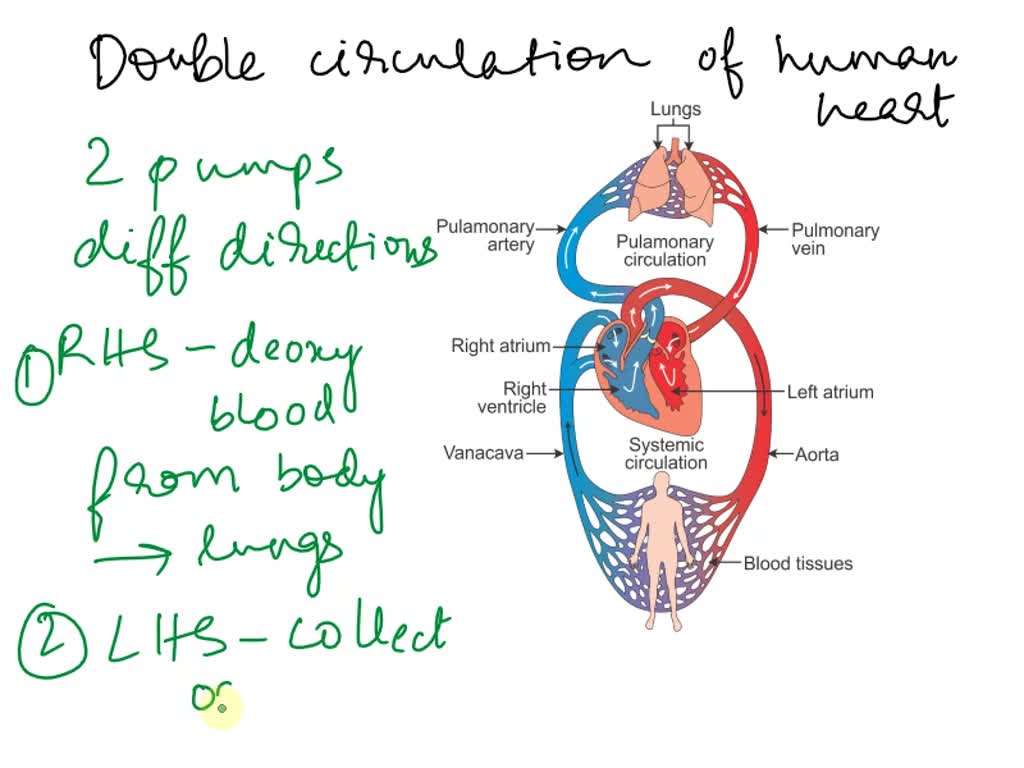 Double circulation of human
heart
2 pumps
diff directions
① RHS - deoxy
blood
from body
→ lungs
② LHS - collect
Lungs
Pulamonary
artery
Pulamonary
circulation
Pulmonary
vein
Right atrium
Right
ventricle
Left atrium
Vanacava
Systemic
circulation
Aorta
Blood tissues